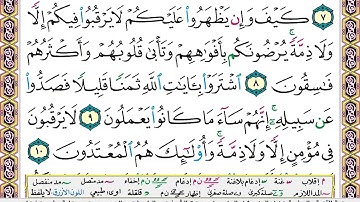 ٧ كَيْفَ وَإِن يَظْهَرُوا۟ عَلَيْكُمْ لَا يَرْقُبُوا۟ فِيكُمْ إِلًّا
وَلَا ذِمَّةً ۚ يُرْضُونَكُم بِأَفْوَٰهِهِمْ وَتَأْبَىٰ قُلُوبُهُمْ وَأَكْثَرُهُمْ
فَٰسِقُونَ ٨ ٱشْتَرَوْا۟ بِـَٔايَٰتِ ٱللَّهِ ثَمَنًا قَلِيلًا فَصَدُّوا۟
عَن سَبِيلِهِۦٓ ۚ إِنَّهُمْ سَآءَ مَا كَانُوا۟ يَعْمَلُونَ ٩ لَا يَرْقُبُونَ
فِى مُؤْمِنٍ إِلًّا وَلَا ذِمَّةً ۚ وَأُو۟لَٰٓئِكَ هُمُ ٱلْمُعْتَدُونَ ١٠